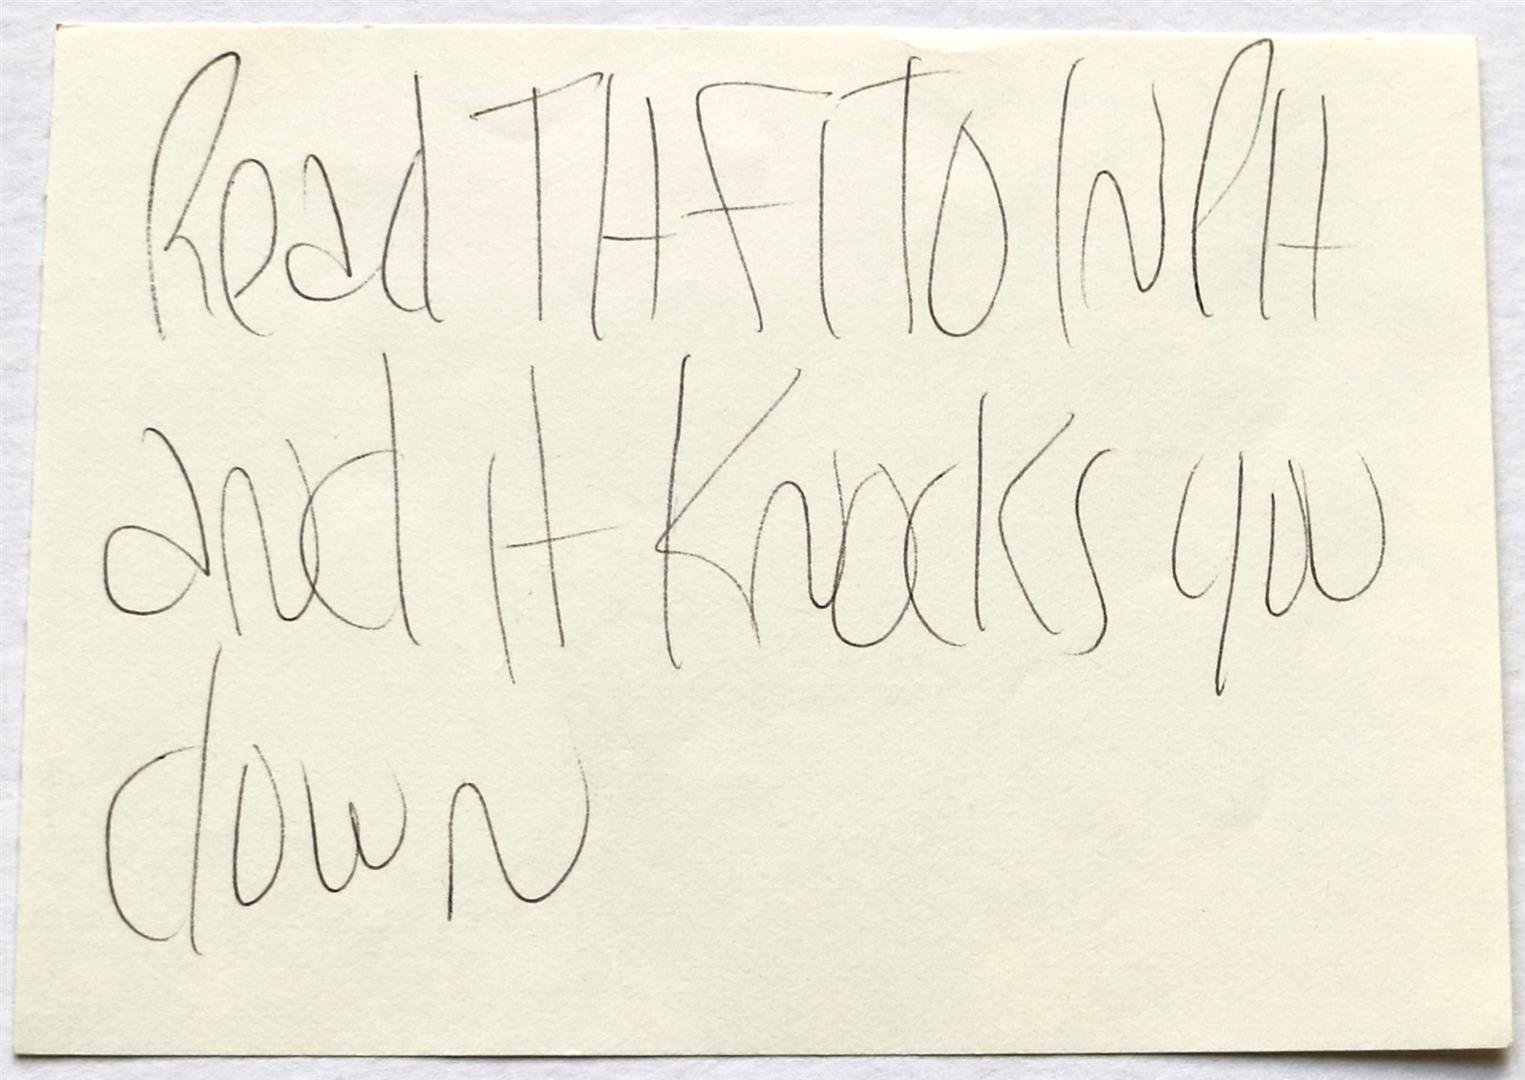 Read THFITO INPH
and it knocks you
down